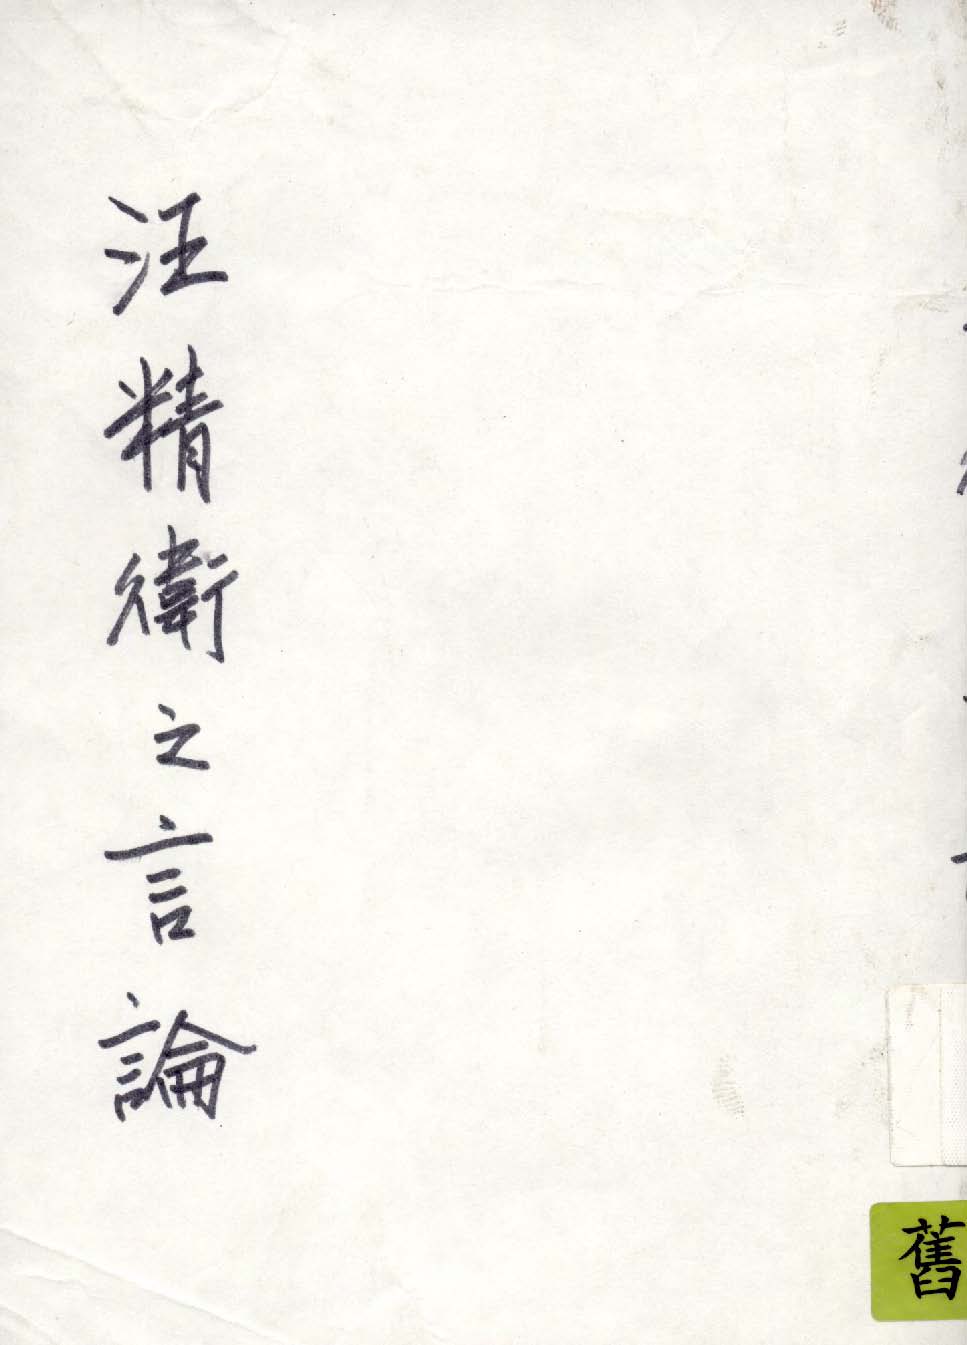 汪精衛之言論
舊